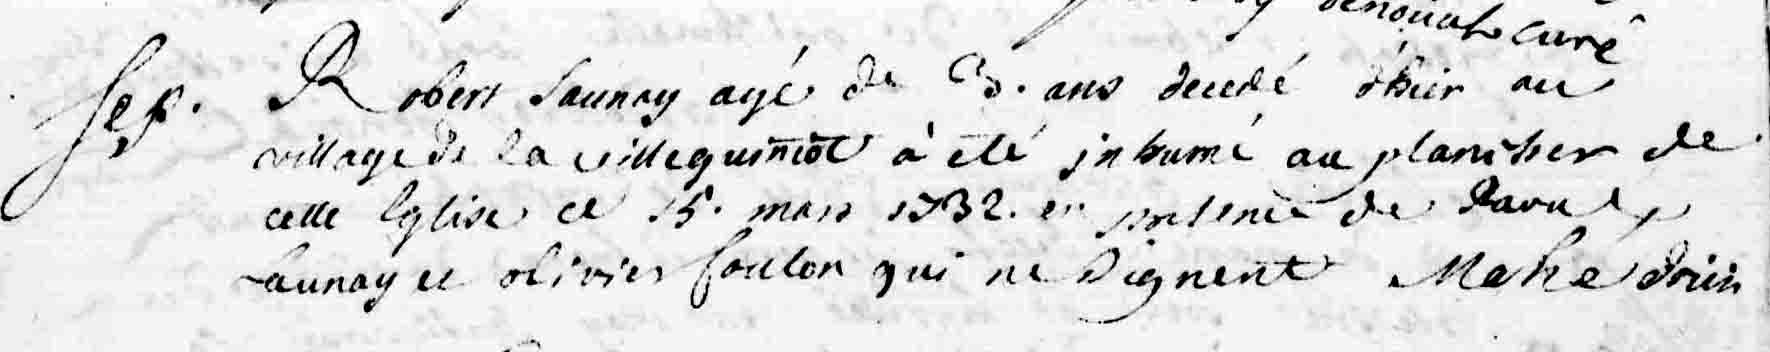 curé
sep. Robert Launay agé de 3. ans decedé d'hier au
village de la villeguiniot à été inhumé au plancher de
cette Eglise ce 15. mars 1732. en presence de
Launay et olivier foulon qui ne signent Mahé